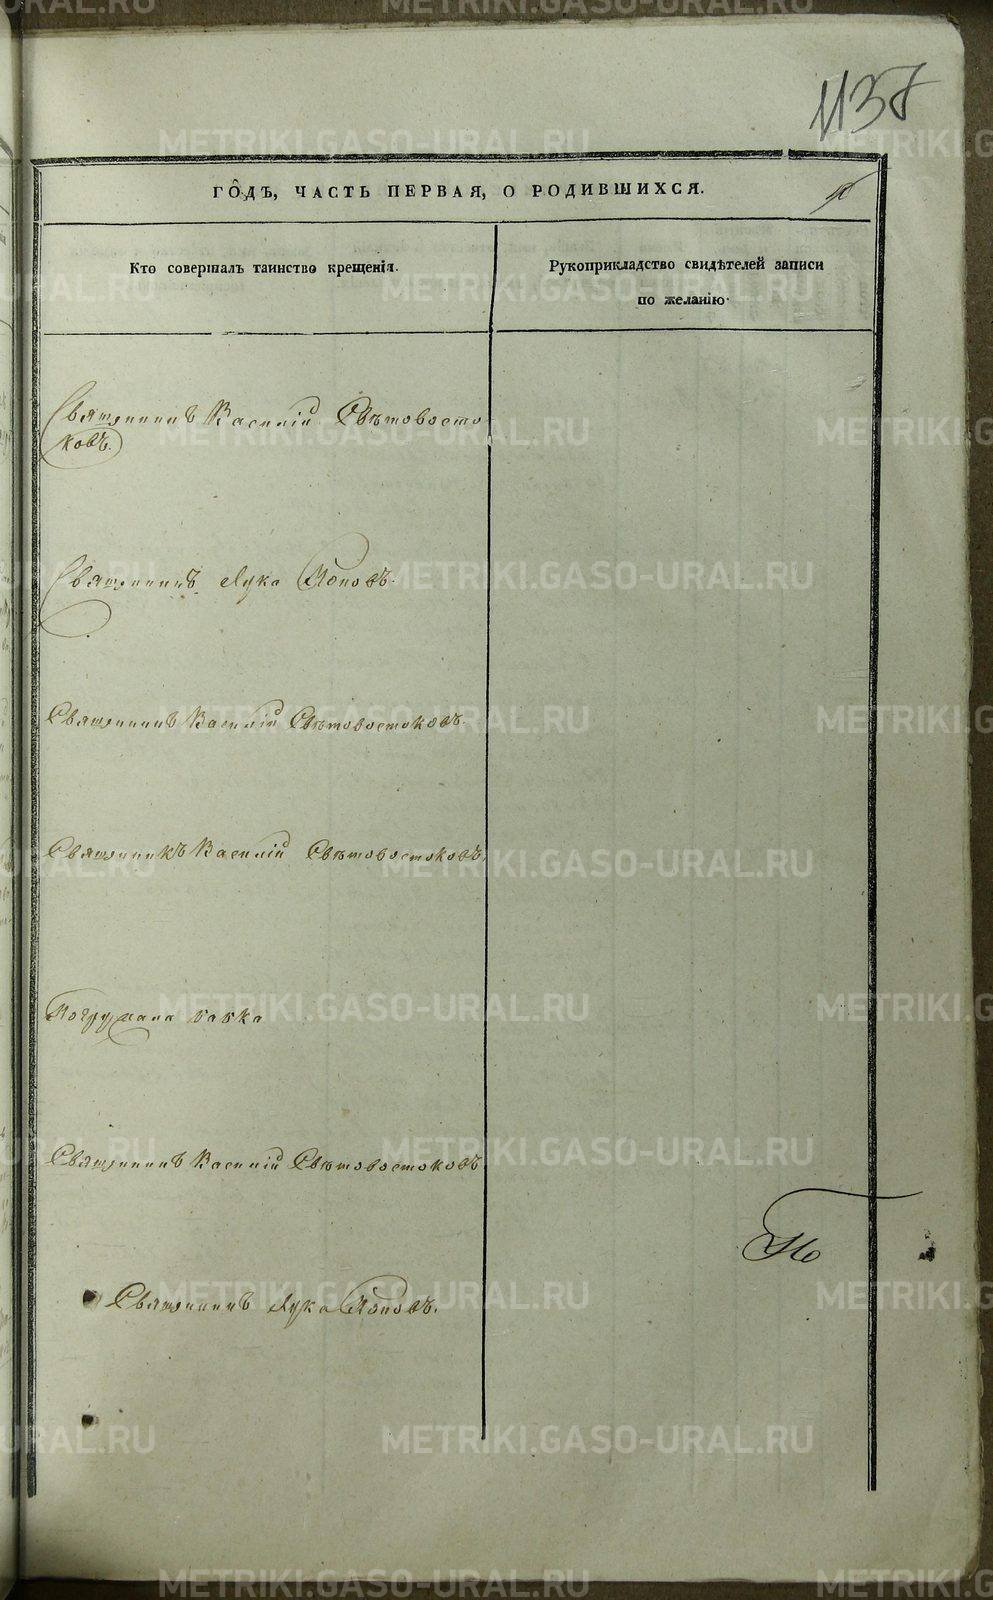 1137
ГОДЪ, ЧАСТЬ ПЕРВАЯ, О РОДИВШИХСЯ.
Кто совершалъ таинство крещенія.
Рукоприкладство свидѣтелей записи
по желанію.
Священникъ Василій Свѣтовосто
ковъ.
Священникъ Лука Поповъ.
Священникъ Василій Свѣтовостоковъ.
Священникъ Василій Свѣтовостоковъ.
Погружала бабка
Священникъ Василій Свѣтовостоковъ
Священникъ Лука Поповъ.
METRIKI.GASO-URAL.RU